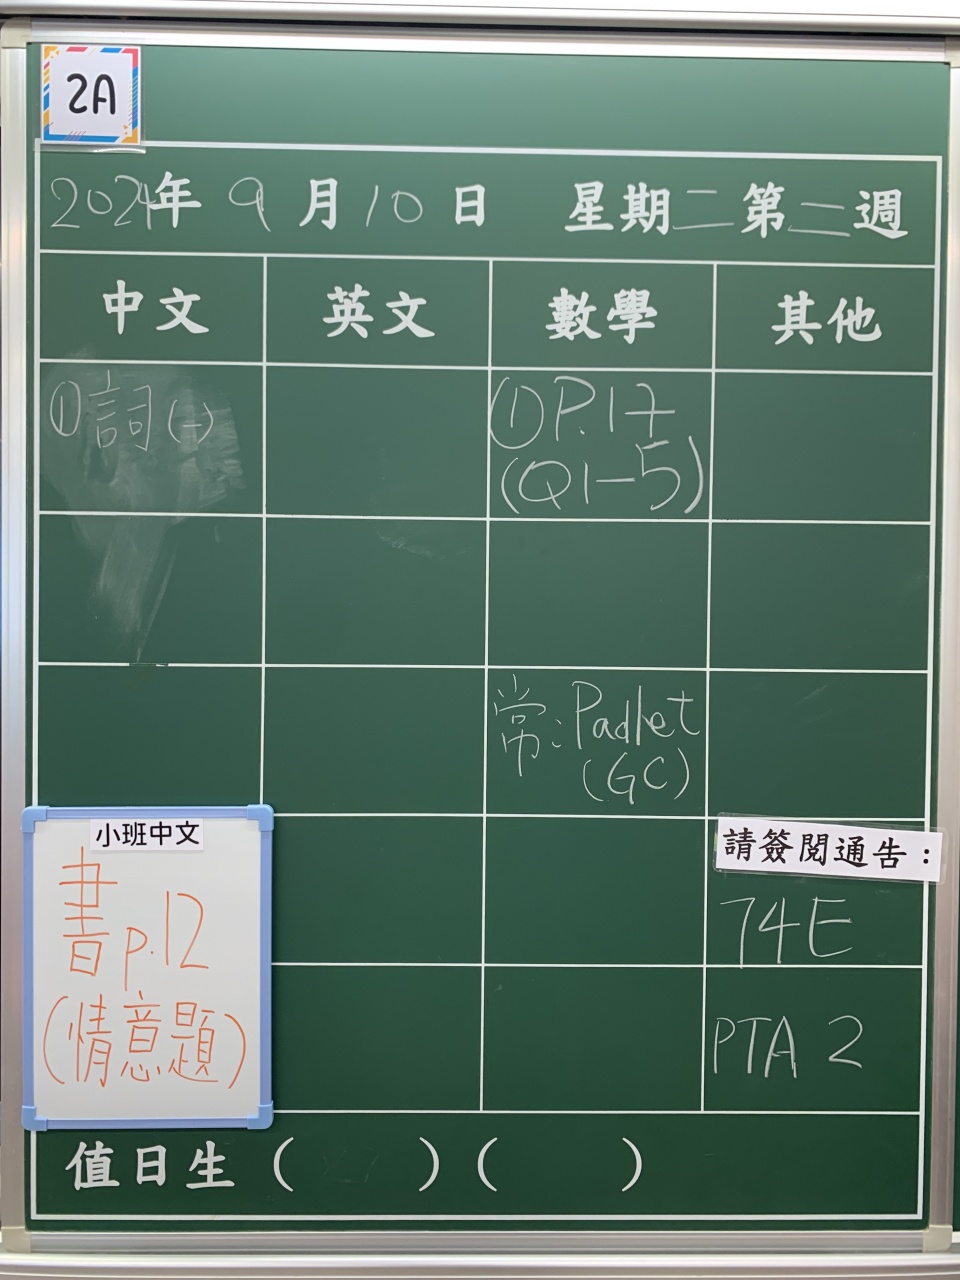 2A
2024年 9月10日 星期二第二週
中文 英文 數學 其他
①詞(一)
①P.17
(Q1-5)
常:Padlet
(GC)
小班中文
書p.12
(情意題)
請簽閱通告:
74E
PTA 2
值日生 ( ) ( )